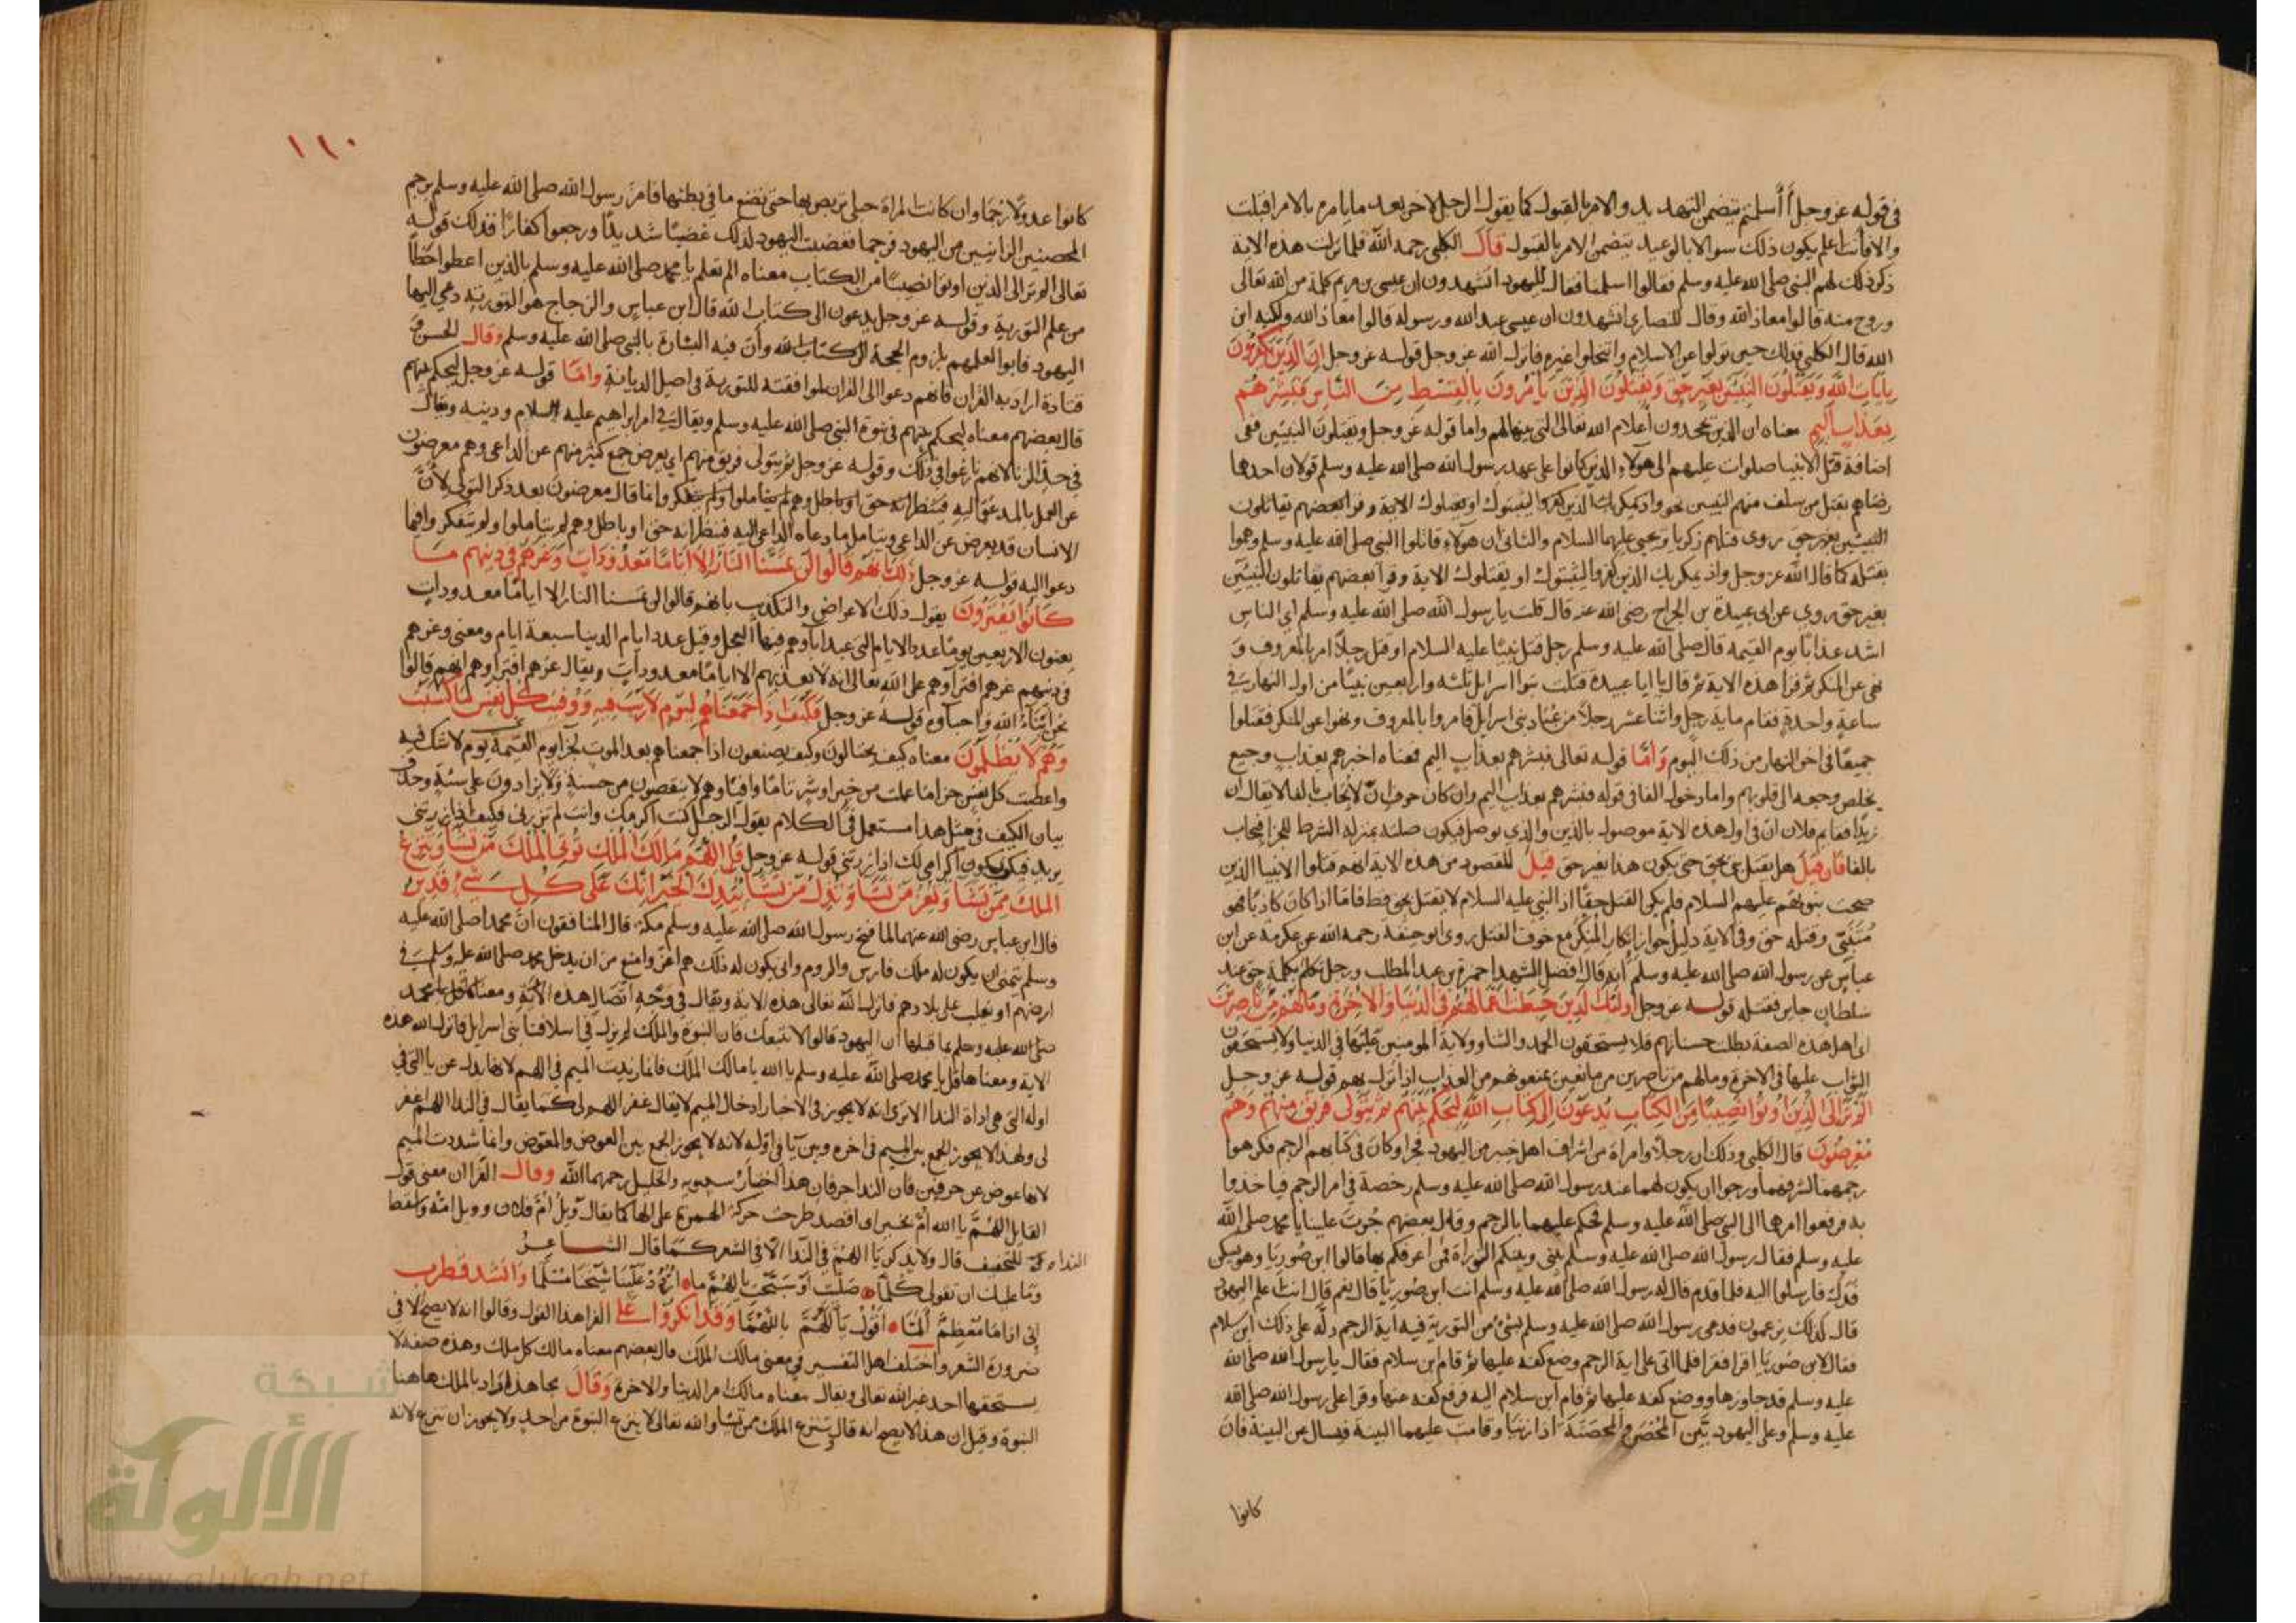 في قوله عز وجل أأسلمتم يتضمن التهديد والامر بالقبول كما يقول الرجل لاخر بعد ما يامره بالامر اقبلت
والا فانت اعلم يكون ذلك سوالا بالوعيد يتضمن الامر بالقبول قال الكلبي رحمه الله فلما نزلت هذه الاية
ذكر ذلك لهم النبي صلى الله عليه وسلم فقالوا اسلمنا فقال لليهود اتشهدون ان عيسى بن مريم كلمة من الله تعالى
وروح منه قالوا معاذ الله وقال للنصارى اتشهدون ان عيسى عبد الله ورسوله قالوا معاذ الله ولكنه ابن
الله قال الكلبي فذلك حين تولوا عن الاسلام وانتحلوا غيره فانزل الله عز وجل قوله عز وجل ان الذين يكفرون
بايات الله ويقتلون النبيين بغير حق ويقتلون الذين يامرون بالقسط من الناس فبشرهم
بعذاب اليم معناه ان الذين يجحدون أعلام الله تعالى التي بينها لهم واما قوله عز وجل ويقتلون النبيين ففي
اضافة قتل الانبيا صلوات عليهم الى هولاء الذين كانوا على عهد رسول الله صلى الله عليه وسلم قولان احدها
رضاهم بقتل من سلف منهم النبيين نحو واذ يمكر بك الذين كفروا ليثبتوك او يقتلوك الاية وقرا بعضهم يقاتلون
النبيين بغير حق روى قتلهم زكريا ويحيى عليهما السلام والثاني ان هولاء قاتلوا النبي صلى الله عليه وسلم وهموا
بقتله كما قال الله عز وجل واذ يمكر بك الذين كفروا ليثبتوك او يقتلوك الاية وقرا بعضهم يقاتلون النبيين
بغير حق وروي عن ابي عبيدة بن الجراح رضي الله عنه قال قلت يا رسول الله صلى الله عليه وسلم اي الناس
اشد عذابا يوم القيمة قال صلى الله عليه وسلم رجل قتل نبيا عليه السلام او قتل رجلا امر بالمعروف و
نهى عن المنكر ثم قرا هذه الاية ثم قال يا ابا عبيدة قتلت بنوا اسرايل ثلثه واربعين نبيا من اول النهار في
ساعة واحدة فقام ماية رجل واثنا عشر رجلا من عباد بني اسرايل فامروا بالمعروف ونهوا عن المنكر فقتلوا
جميعا في اخر النهار من ذلك اليوم واما قوله تعالى فبشرهم بعذاب اليم فمعناه اخبرهم بعذاب وجيع
يخلص وجعه الى قلوبهم واما دخول الفا في قوله فبشرهم بعذاب اليم وان كان حرف ان لا يجاب بالفا لا يقال ان
زيدا فقايم فلان ان في اول هذه الاية موصول بالذين والذي يوصل فيكون صلته بمنزلة الشرط للجزا فيجاب
بالفا فان قيل هل يقتل نبي بحق حتى يكون هذا بغير حق قيل المقصود من هذه الاية انهم قتلوا الانبيا الذين
صحت نبوتهم عليهم السلام فلم يكن القتل حقا اذ النبي عليه السلام لا يقتل بحق قط فاما اذا كان كاذبا فهو
متنبي وقتله حق وفي الاية دليل جواز انكار المنكر مع خوف القتل روى ابو حنيفة رحمه الله عن عكرمة عن ابن
عباس عن رسول الله صلى الله عليه وسلم انه قال افضل الشهدا حمزة بن عبد المطلب ورجل تكلم بكلمة حق عند
سلطان جاير فقتله قوله عز وجل اولئك الذين حبطت اعمالهم في الدنيا والاخرة وما لهم من ناصرين
اي اهل هذه الصفة بطلت حسناتهم فلا يستحقون الحمد والثنا وولاية المومنين عليها في الدنيا ولا يستحقون
الثواب عليها في الاخرة وما لهم من ناصرين من مانعين يمنعونهم من العذاب اذا نزل بهم قوله عز وجل
الم تر الى الذين اوتوا نصيبا من الكتاب يدعون الى كتاب الله ليحكم بينهم ثم يتولى فريق منهم وهم
معرضون قال الكلبي وذلك ان رجلا وامراة من اشراف اهل خيبر من اليهود فجرا وكان في كتابهم الرجم فكرهوا
رجمهما لشرفهما ورجوا ان يكون لهما عند رسول الله صلى الله عليه وسلم رخصة في امر الرجم فياخذوا
به فرفعوا امرها الى النبي صلى الله عليه وسلم فحكم عليهما بالرجم وقال بعضهم جرت علينا يا محمد صلى الله
عليه وسلم فقال رسول الله صلى الله عليه وسلم بيني وبينكم التوراة فمن اعرفكم بها قالوا ابن صوريا وهو يسكن
فدك فارسلوا اليه فلما قدم قال له رسول الله صلى الله عليه وسلم انت ابن صوريا قال نعم قال انت اعلم اليهود
قال كذلك يزعمون فدعى رسول الله صلى الله عليه وسلم بشيء من التورية فيه اية الرجم دله على ذلك ابن سلام
فقال لابن صوريا اقرا فقرا فلما اتى على اية الرجم وضع كفه عليها ثم قام ابن سلام فقال يا رسول الله صلى الله
عليه وسلم قد جاوزها ووضع كفه عليها ثم قام ابن سلام اليه فرفع كفه عنها وقرا على رسول الله صلى الله
عليه وسلم وعلى اليهود بين المحصن والمحصنة اذا زنيا وقامت عليهما البينة فيسال عن البينة فان
كانوا
١١٠
كانوا عدولا رجما وان كانت المراة حبلى تربص بها حتى تضع ما في بطنها فامر رسول الله صلى الله عليه وسلم برجم
المحصنين الزانيين من اليهود فرجما فغضبت اليهود لذلك غضبا شديدا ورجعوا كفارا فذلك قوله
تعالى الم تر الى الذين اوتوا نصيبا من الكتاب معناه الم تعلم يا محمد صلى الله عليه وسلم بالذين اعطوا حظا
من علم التورية وقوله عز وجل يدعون الى كتاب الله قال ابن عباس والزجاج هو التورية دعي اليها
اليهود فابوا لعلمهم بلزوم الحجة لان كتاب الله وأن فيه البشارة بالنبي صلى الله عليه وسلم وقال الحسن و
قتادة اراد به القران فانهم دعوا الى القران لموافقته للتورية في اصل الديانة واما قوله عز وجل ليحكم بينهم
قال بعضهم معناه ليحكم بينهم في نبوة النبي صلى الله عليه وسلم ويقال في امر ابراهيم عليه السلام ودينه ويقال
في حد الزنا لانهم نازعوا في ذلك وقوله عز وجل ثم يتولى فريق منهم اي يعرض جمع كثير منهم عن الداعي وهم معرضون
عن العمل بالمدعو اليه فينظر انه حق او باطل وهم لم يتاملوا ولم يتفكروا وانما قال معرضون بعد ذكر التولي لان
الانسان قد يعرض عن الداعي ويتامل ما دعاه الداعي اليه فينظر انه حق او باطل وهم لم يتاملوا ولم يتفكروا فيما
دعوا اليه قوله عز وجل ذلك بانهم قالوا لن تمسنا النار الا اياما معدودات وغرهم في دينهم ما
كانوا يفترون يقول ذلك الاعراض والتكذيب بانهم قالوا لن تمسنا النار الا اياما معدودات
يعنون الاربعين يوما عدد الايام التي عبد اباوهم فيها العجل وقيل عدد ايام الدنيا سبعة ايام ومعنى وغرهم
في دينهم غرهم افتراوهم على الله تعالى انه لا يعذبهم الا اياما معدودات ويقال غرهم افتراوهم انهم قالوا
نحن ابناء الله واحباوه قوله عز وجل فكيف اذا جمعناهم ليوم لا ريب فيه ووفيت كل نفس ما كسبت
وهم لا يظلمون معناه كيف يحتالون وكيف يصنعون اذا جمعناهم بعد الموت لجزا يوم القيمة يوم لا شك فيه
واعطيت كل نفس جزا ما عملت من خير او شر تاما وافيا وهم لا ينقصون من حسنة ولا يزادون على سيئة وحذف
بيان الكيف في مثل هذا مستعمل في الكلام يقول الرجل كنت اكرمك وانت لم تزرني فكيف اذا زرتني
يريد فكيف يكون اكرامي لك اذا زرتني قوله عز وجل قل اللهم مالك الملك توتي الملك من تشا وتنزع
الملك ممن تشا وتعز من تشا وتذل من تشا بيدك الخير انك على كل شيء قدير
قال ابن عباس رضي الله عنهما لما فتح رسول الله صلى الله عليه وسلم مكة قال المنافقون ان محمدا صلى الله عليه
وسلم يتمنى ان يكون له ملك فارس والروم وانى يكون له ذلك هم اعز وامنع من ان يدخل محمد صلى الله عليه وسلم في
ارضهم او يغلب على بلادهم فانزل الله تعالى هذه الاية ويقال في وجه اتصال هذه الاية ومعناها قل يا محمد
صلى الله عليه وسلم بما قبلها ان اليهود قالوا لا نتبعك فان النبوة والملك لم يزل في اسلافنا بني اسرايل فانزل الله هذه
الاية ومعناها قل يا محمد صلى الله عليه وسلم يا الله يا مالك الملك فانما زيدت الميم في اللهم لانها بدل عن يا التي في
اوله التي هي اداة الندا الا ترى انه لا يجوز في الاخبار ادخال الميم لا يقال غفر اللهم لي كما يقال في الندا اللهم اغفر
لي ولهذا لا يجوز الجمع بين الميم في اخره وبين يا في اوله لانه لا يجوز الجمع بين العوض والمعوض وانما شددت الميم
لانها عوض عن حرفين فان الندا حرفان هذا اختيار سيبويه والخليل رحمهما الله وقال الفرا ان معنى قول
القايل اللهم يا الله ام بخير اي اقصد طرحت حركة الهمزة على الها كما يقال ويل ام فلان وويل امه واسقط
النداه للتخفيف قال ولا يذكر يا اللهم في الندا الا في الشعر كما قال الشاعر
وما عليك ان تقولي كلما صليت او سبحت يا اللهم ما اردد علينا شيخنا مسلما وانشد قطرب
اني اذا ما معظم ألما اقول يا اللهم يا اللهما وقد انكروا على الفرا هذا القول وقالوا انه لا يصح الا في
ضرورة الشعر واختلف اهل التفسير في معنى مالك الملك قال بعضهم معناه مالك كل ملك وهذه صفة لا
يستحقها احد غير الله تعالى ويقال معناه مالك امر الدنيا والاخرة وقال مجاهد اراد بالملك هاهنا
النبوة وقيل ان هذا لا يصح انه قال وتنزع الملك ممن تشا والله تعالى لا ينزع النبوة من احد ولا يجوز ان ينزع لانه
شبكة
الألوكة
www.alukah.net